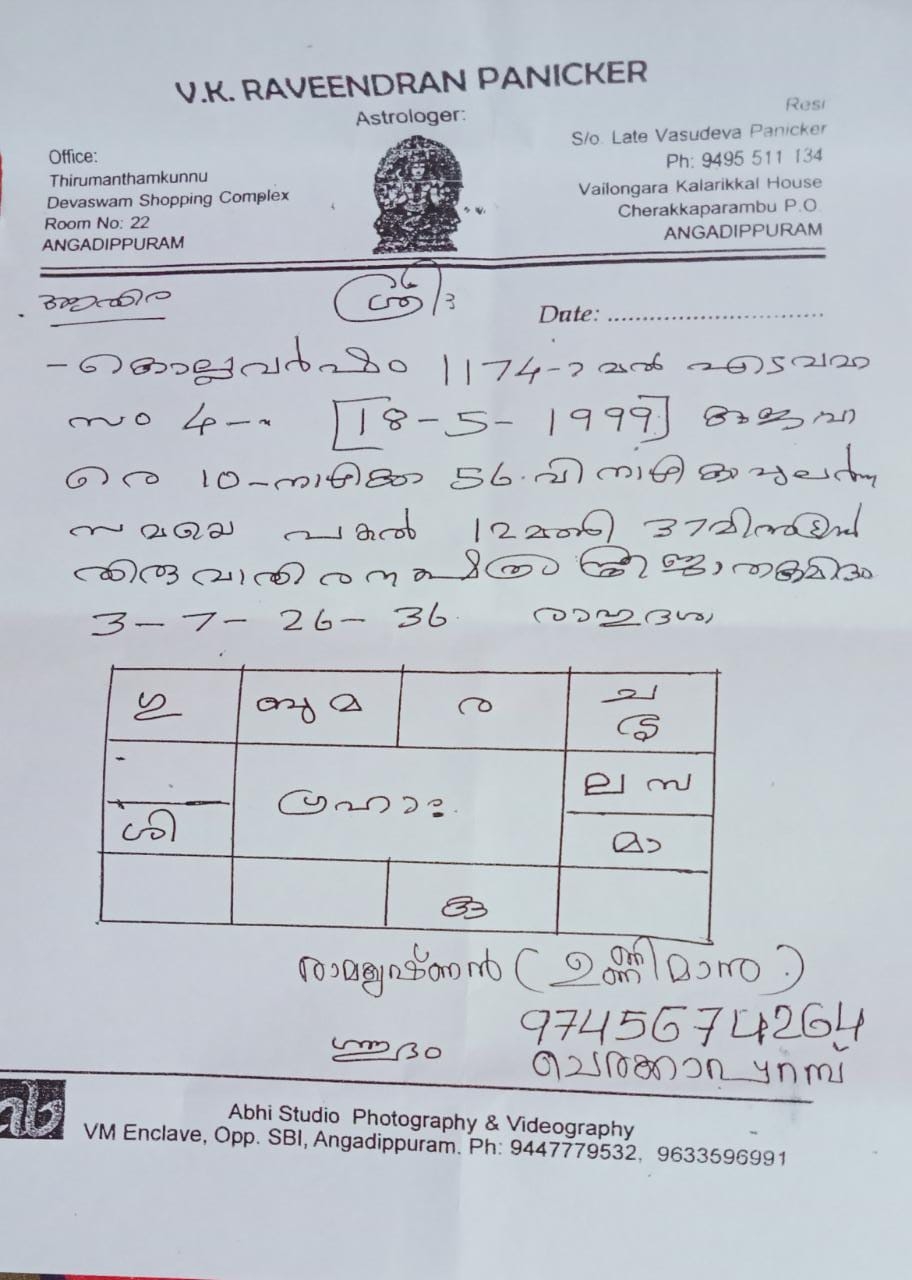 V.K. RAVEENDRAN PANICKER
Astrologer:
Office:
Thirumanthamkunnu
Devaswam Shopping Complex
Room No: 22
ANGADIPPURAM
Resi
S/o. Late Vasudeva Panicker
Ph: 9495 511 134
Vailongara Kalarikkal House
Cherakkaparambu P.O.
ANGADIPPURAM
ശ്രീഃ
Date: ..............................
കൊല്ലവർഷം 1174-ാമത് എടവമാ
സം 4-ാം [18-5-1999] ചൊവ്വാ
10-നാഴിക 56 വിനാഴിക പുലർന്ന
സമയെ പകൽ 12മണി 37മിനിട്ടിന്
തിരുവാതിര നക്ഷത്രം സ്ത്രീജാതകമിദം
3-7-26-36. രാഹുദശ
ഗു
ബു മ
ര
ച
ശു
ല സ
ഗ്രഹാഃ
ശി
മാ
രാമകൃഷ്ണൻ (ഉണ്ണി
9745674264
ചെരക്കാപറമ്പ്
ab
Abhi Studio Photography & Videography
VM Enclave, Opp. SBI, Angadippuram. Ph: 9447779532, 9633596991